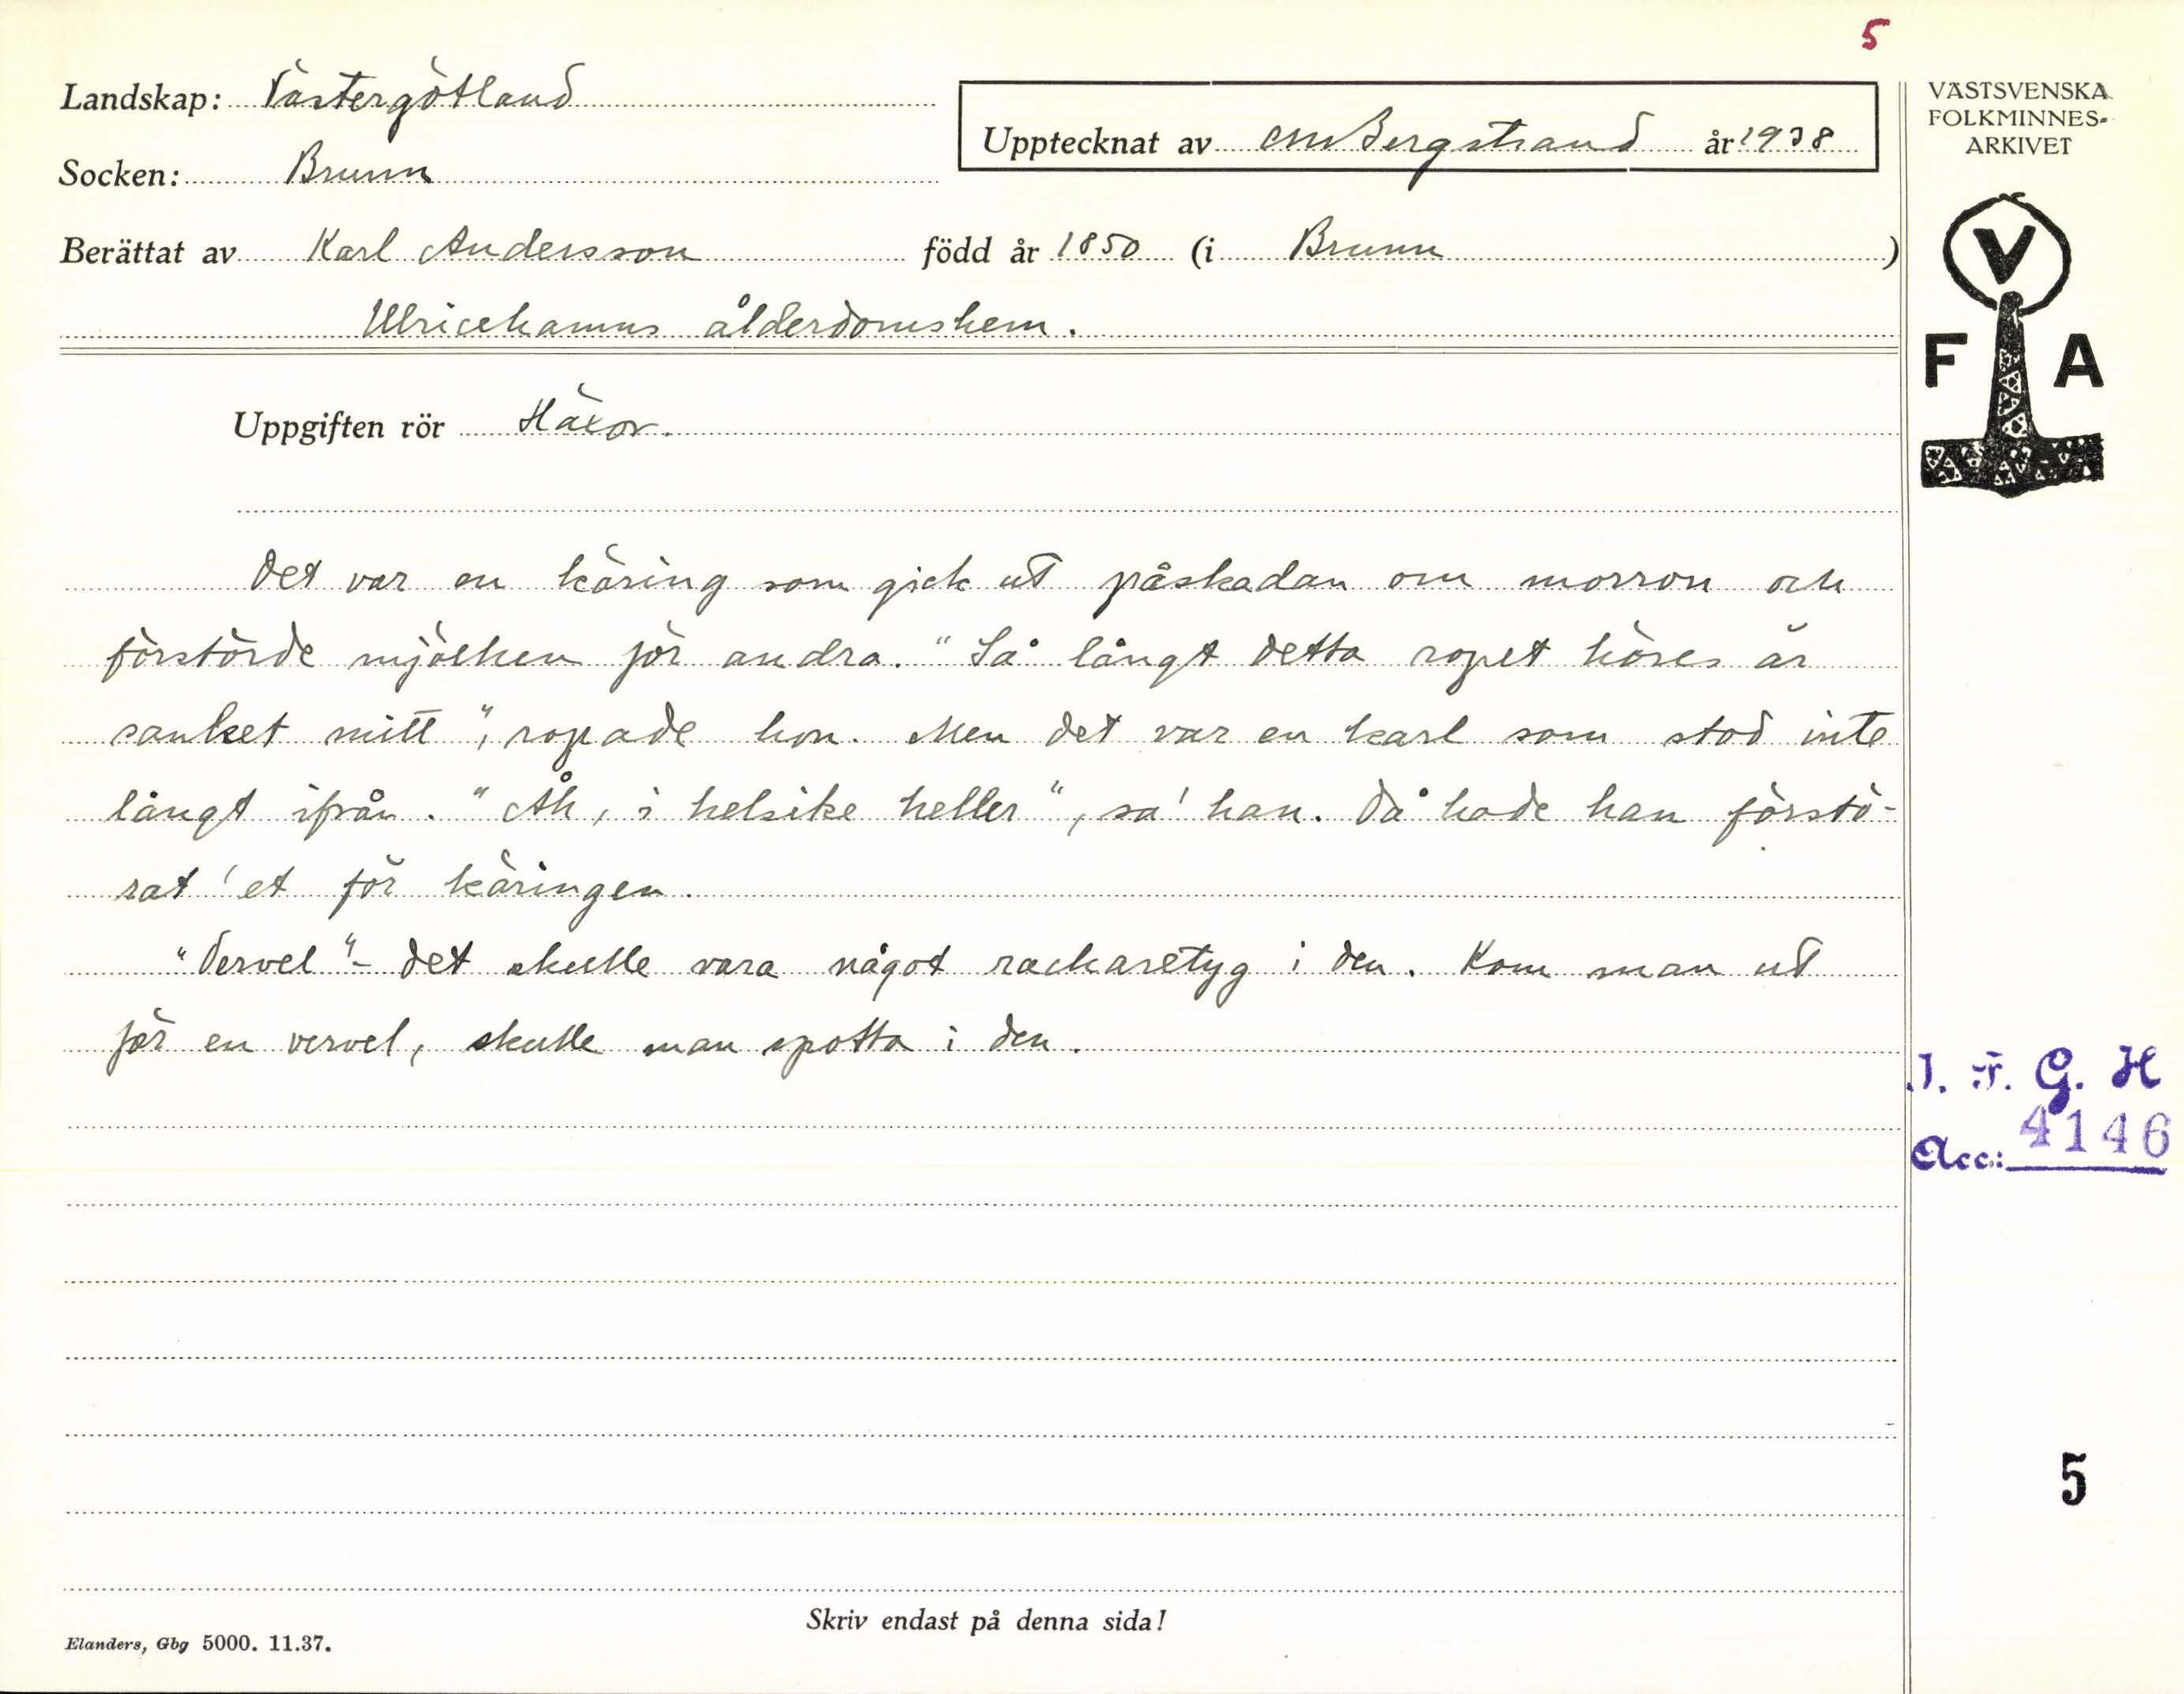 5
Landskap: Västergötland
Socken: Brunn
Upptecknat av CM Bergstrand år 1938
Berättat av Karl Andersson född år 1850 (i Brunn)
Ulricehamns ålderdomshem.
Uppgiften rör Häxor.
Det var en käring som gick ut påskadan om morron och
förstörde mjölken för andra. "Så långt detta ropet höres är
sanket mitt", ropade hon. Men det var en karl som stod inte
långt ifrån. "Åh, i helsike heller", sa' han. Då hade han förstö-
rat 'et för käringen.
"Vervel" - det skulle vara något rackaretyg i den. Kom man ut
för en vervel, skulle man spotta i den.
Skriv endast på denna sida!
Elanders, Gbg 5000. 11.37.
VÄSTSVENSKA
FOLKMINNES-
ARKIVET
V
F A
I. F. G. H
Acc.: 4146
5